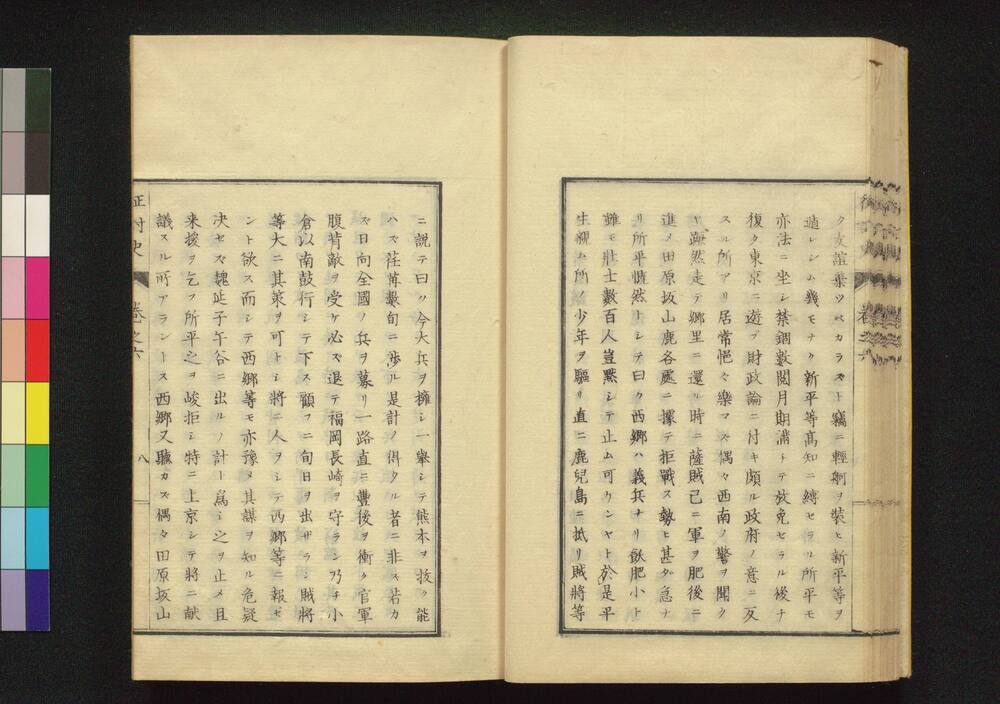 ク友誼棄ツベカラスト竊ニ輕舸ヲ裝ヒ新平等ヲ
遁レシム幾モナク新平等高知ニ縛セラル所平モ
亦法ニ坐シ禁錮數閲月期滿トテ放免セラル後チ
復タ東京ニ遊ブ財政論ニ付キ頗ル政府ノ意ニ反
スル所アリ居常悒々樂マズ偶々西南ノ警ヲ聞ク
ヤ蹶然走テ郷里ニ還ル時ニ薩賊已ニ軍ヲ肥後ニ
進メ田原坂山鹿各處ニ據テ拒戰ス勢ヒ甚ダ急ナ
リ所平慨然トシテ曰ク西郷ハ義兵ナリ飫肥小ト
雖モ壯士數百人豈黙シテ止ム可ケンヤト於是平
生親ム所ノ少年ヲ驅リ直ニ鹿兒島ニ抵リ賊將等
ニ說テ曰ク今大兵ヲ擁シ一舉シテ熊本ヲ拔ク能
ハズ荏苒數旬ニ渉ル是計ノ得タル者ニ非ス若カ
ズ日向全國ノ兵ヲ募リ一路直ニ豐後ヲ衝ク官軍
腹背敵ヲ受ケ必ズ退テ福岡長崎ヲ守ラン乃チ小
倉以南鼓行シテ下ス顧フニ旬日ヲ出ザラン賊將
等大ニ其策ヲ可トシ將ニ人ヲシテ西郷等ニ報ゼ
ント欲ス而シテ西郷等モ亦豫メ其謀ヲ知ル危疑
決セズ魏延子午谷ニ出ルノ計ト爲シ之ヲ止メ且
来援ヲ乞フ所平之ヲ峻拒シ特ニ上京シテ將ニ献
議スル所アラントス西郷又聽カズ偶々田原坂山
征討史
卷之六
八